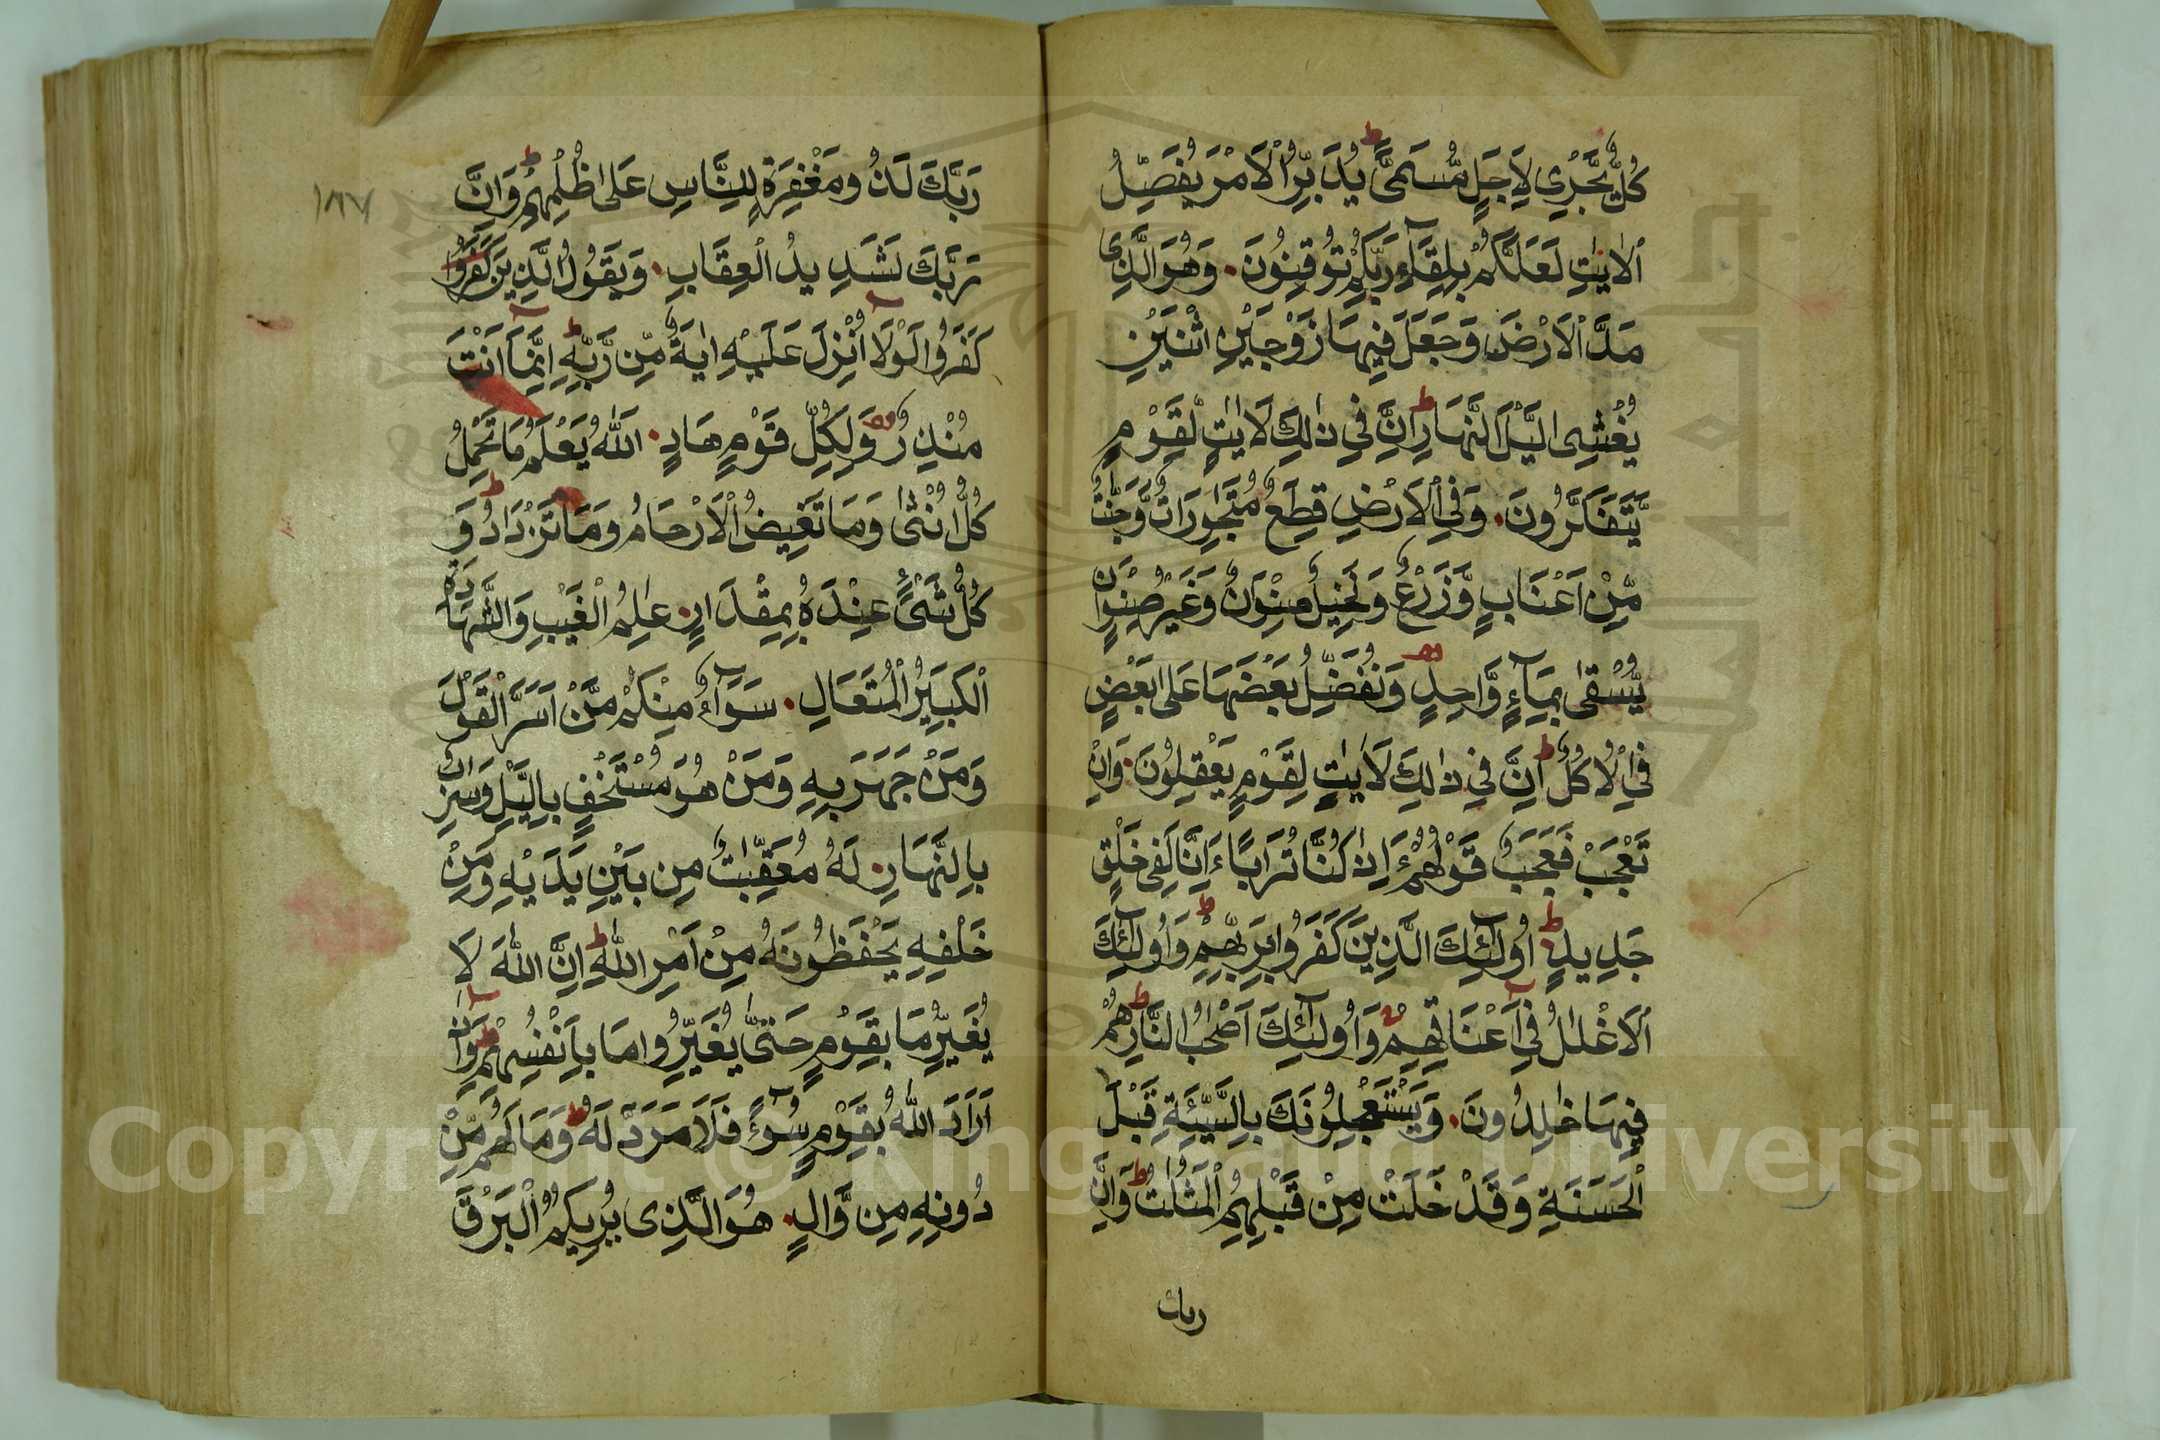 كُلٌّ يَّجْرِي لِاَجَلٍ مُّسَمًّى ط يُدَبِّرُ الْاَمْرَ يُفَصِّلُ
الْاٰيٰتِ لَعَلَّكُمْ بِلِقَآءِ رَبِّكُمْ تُوقِنُونَ. وَهُوَ الَّذِى
مَدَّ الْاَرْضَ وَجَعَلَ فِيهَا زَوْجَيْنِ اثْنَيْنِ
يُغْشِى الَّيْلَ النَّهَارَ ط اِنَّ فِي ذٰلِكَ لَاٰيٰتٍ لِّقَوْمٍ
يَّتَفَكَّرُونَ. وَفِي الْاَرْضِ قِطَعٌ مُّتَجٰوِرَاتٌ وَّجَنّٰتٌ
مِّنْ اَعْنَابٍ وَّزَرْعٌ وَّنَخِيلٌ صِنْوَانٌ وَّغَيْرُ صِنْوَانٍ
يُّسْقٰى بِمَآءٍ وَّاحِدٍ وَنُفَضِّلُ بَعْضَهَا عَلٰى بَعْضٍ
فِي الْاُكُلِ ط اِنَّ فِي ذٰلِكَ لَاٰيٰتٍ لِقَوْمٍ يَعْقِلُونَ. وَاِنْ
تَعْجَبْ فَعَجَبٌ قَوْلُهُمْ ءَاِذَا كُنَّا تُرَابًا ءَاِنَّا لَفِى خَلْقٍ
جَدِيدٍ ط اُولٰٓئِكَ الَّذِينَ كَفَرُوا بِرَبِّهِمْ ط وَاُولٰٓئِكَ
الْاَغْلٰلُ فِي اَعْنَاقِهِمْ وَاُولٰٓئِكَ اَصْحٰبُ النَّارِ ط هُمْ
فِيهَا خٰلِدُونَ. وَيَسْتَعْجِلُونَكَ بِالسَّيِّئَةِ قَبْلَ
الْحَسَنَةِ وَقَدْ خَلَتْ مِنْ قَبْلِهِمُ الْمَثُلٰتُ ط وَاِنَّ
ربك
١٨٧
رَبَّكَ لَذُو مَغْفِرَةٍ لِلنَّاسِ عَلٰى ظُلْمِهِمْ ط وَاِنَّ
رَبَّكَ لَشَدِيدُ الْعِقَابِ. وَيَقُولُ الَّذِينَ كَفَرُوا
كَفَرُوا لَوْلَآ اُنْزِلَ عَلَيْهِ اٰيَةٌ مِّن رَّبِّهِ ط اِنَّمَآ اَنْتَ
مُنْذِرٌ وَلِكُلِّ قَوْمٍ هَادٍ. اَللّٰهُ يَعْلَمُ مَا تَحْمِلُ
كُلُّ اُنْثٰى وَمَا تَغِيضُ الْاَرْحَامُ وَمَا تَزْدَادُ ط وَ
كُلُّ شَىْءٍ عِنْدَهُ بِمِقْدَارٍ. عٰلِمُ الْغَيْبِ وَالشَّهَادَةِ
الْكَبِيرُ الْمُتَعَالِ. سَوَآءٌ مِنْكُمْ مَّنْ اَسَرَّ الْقَوْلَ
وَمَنْ جَهَرَ بِهِ وَمَنْ هُوَ مُسْتَخْفٍ بِالَّيْلِ وَسَارِبٌ
بِالنَّهَارِ. لَهُ مُعَقِّبٰتٌ مِن بَيْنِ يَدَيْهِ وَمِنْ
خَلْفِهِ يَحْفَظُونَهُ مِنْ اَمْرِ اللّٰهِ ط اِنَّ اللّٰهَ لَا
يُغَيِّرُ مَا بِقَوْمٍ حَتّٰى يُغَيِّرُوا مَا بِاَنْفُسِهِمْ ط وَاِذَآ
اَرَادَ اللّٰهُ بِقَوْمٍ سُوٓءً فَلَا مَرَدَّ لَهُ ط وَمَا لَهُمْ مِّنْ
دُونِهِ مِن وَّالٍ. هُوَ الَّذِى يُرِيكُمُ الْبَرْقَ
Copyright © King Saud University